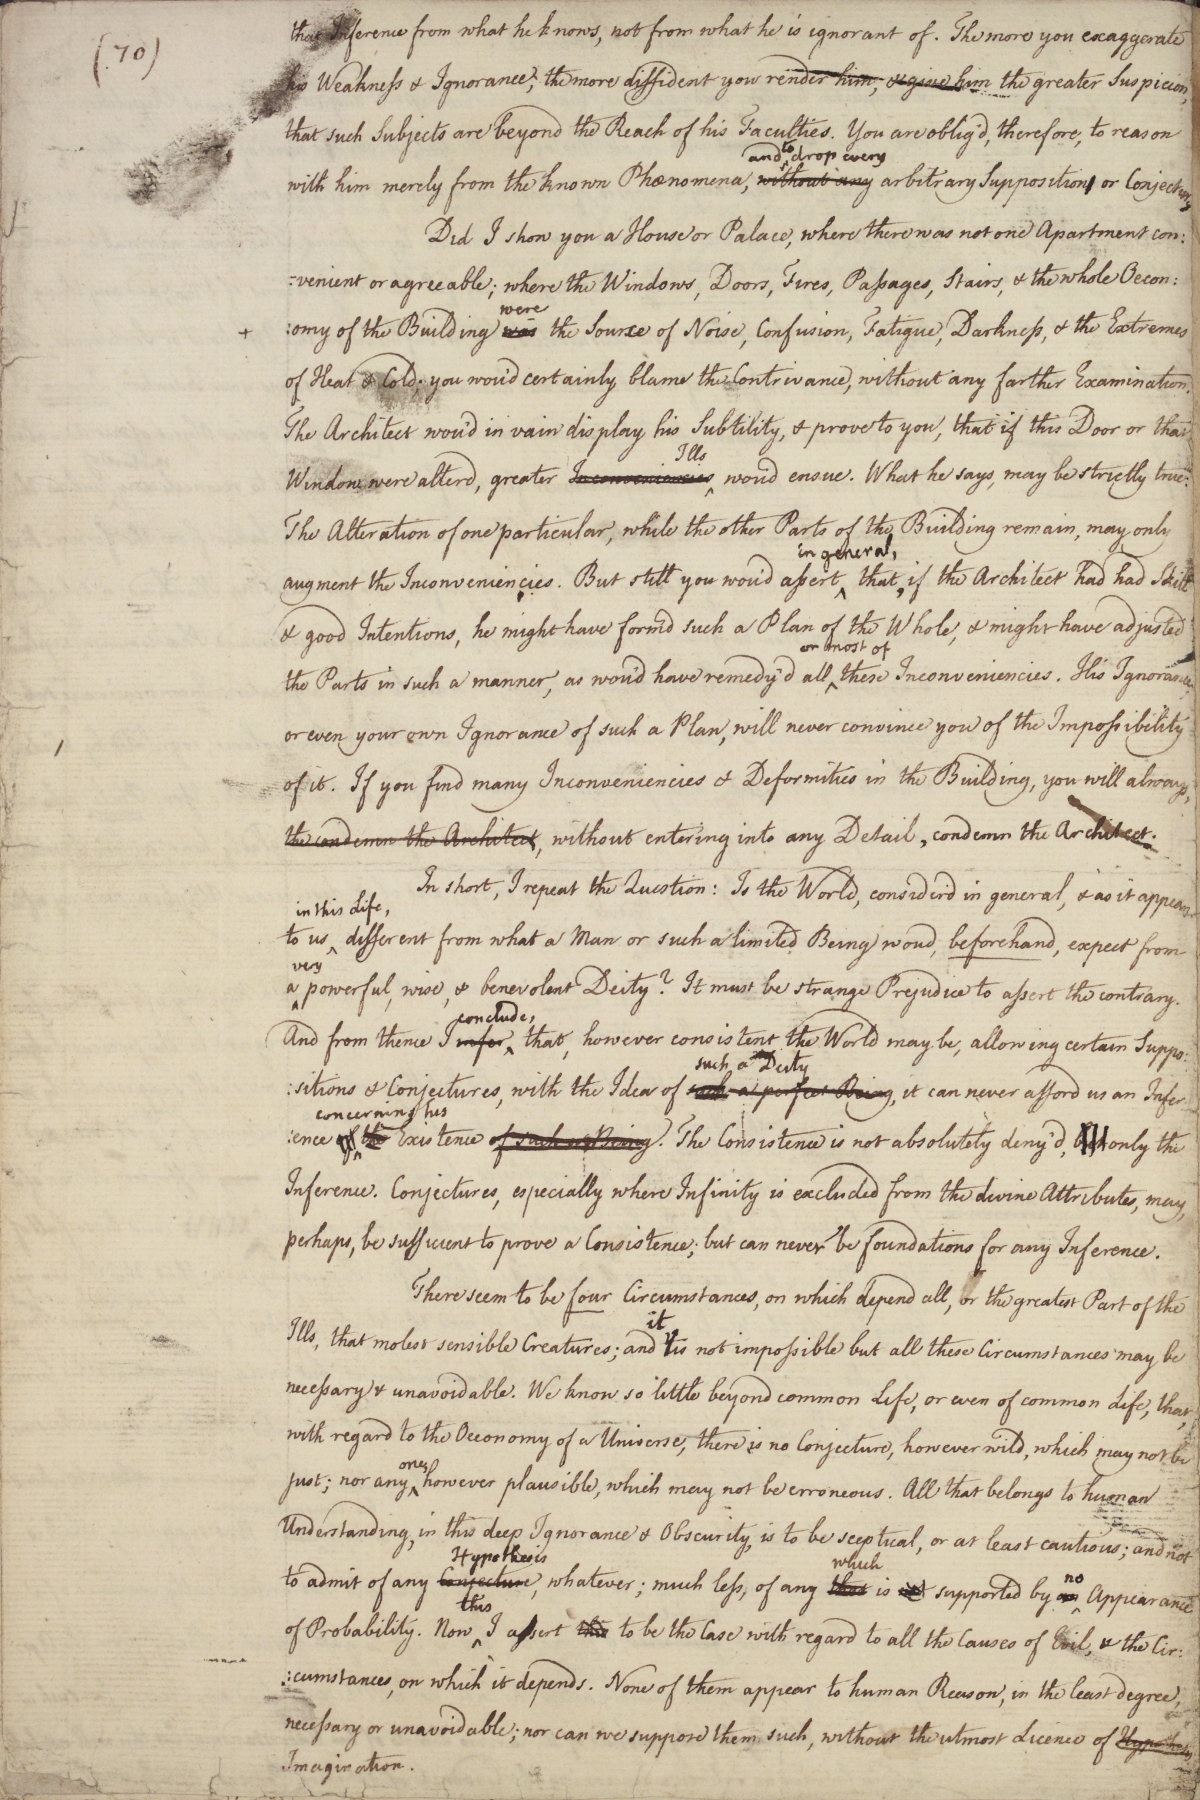 (70)
that Inference from what he knows, not from what he is ignorant of. The more you exaggerate
his Weakness & Ignorance; the more diffident you render him, & give him the greater Suspicion,
that such Subjects are beyond the Reach of his Faculties. You are oblig'd, therefore, to reason
and to drop every
with him merely from the known Phænomena, without any arbitrary Supposition or Conjecture
Did I show you a House or Palace, where there was not one Apartment con:
:venient or agreeable; where the Windows, Doors, Fires, Passages, Stairs, & the whole Oecon:
were
+ :omy of the Building was the Source of Noise, Confusion, Fatigue, Darkness, & the Extremes
of Heat & Cold; you wou'd certainly blame the Contrivance, without any farther Examination.
The Architect wou'd in vain display his Subtility, & prove to you, that if this Door or that
Ills
Window were alterd, greater Inconveniencies wou'd ensue. What he says, may be strictly true:
The Alteration of one particular, while the other Parts of the Building remain, may only
in general,
augment the Inconveniencies. But still you wou'd assert that, if the Architect had had Skill
& good Intentions, he might have form'd such a Plan of the Whole, & might have adjusted
or most of
the Parts in such a manner, as wou'd have remedy'd all these Inconveniencies. His Ignorance,
or even your own Ignorance of such a Plan, will never convince you of the Impossibility
of it. If you find many Inconveniencies & Deformities in the Building, you will always,
the condemn the Architect, without entering into any Detail, condemn the Architect.
In short, I repeat the Question: Is the World, consider'd in general, & as it appears
in this Life,
to us different from what a Man or such a limited Being woud, beforehand, expect from
very
a powerful, wise, & benevolent Deity? It must be strange Prejudice to assert the contrary.
conclude,
And from thence I infer, that, however consistent the World may be, allowing certain Suppo:
such a Deity
:sitions & Conjectures, with the Idea of such a perfect Being, it can never afford us an Infer
concerning his
:ence of the Existence of such a Being. The Consistence is not absolutely deny'd, but only the
Inference. Conjectures, especially where Infinity is excluded from the divine Attributes, may,
perhaps, be sufficient to prove a Consistence; but can never be foundations for any Inference.
There seem to be four Circumstances, on which depend all, or the greatest Part of the
it
Ills, that molest sensible Creatures; and is not impossible but all these Circumstances may be
necessary & unavoidable. We know so little beyond common Life, or even of common Life, that,
with regard to the Oeconomy of a Universe, there is no Conjecture, however wild, which may not be
one,
just; nor any however plausible, which may not be erroneous. All that belongs to human
Understanding, in this deep Ignorance & Obscurity, is to be sceptical, or at least cautious; and not
Hypothesis which no
to admit of any Conjecture, whatever; much less, of any that is not supported by an Appearance
this
of Probability. Now I assert this to be the Case with regard to all the Causes of Evil, & the Cir:
:cumstances, on which it depends. None of them appear to human Reason, in the least degree,
necessary or unavoidable; nor can we suppose them such, without the utmost Licence of Hypothesis
Imagination.